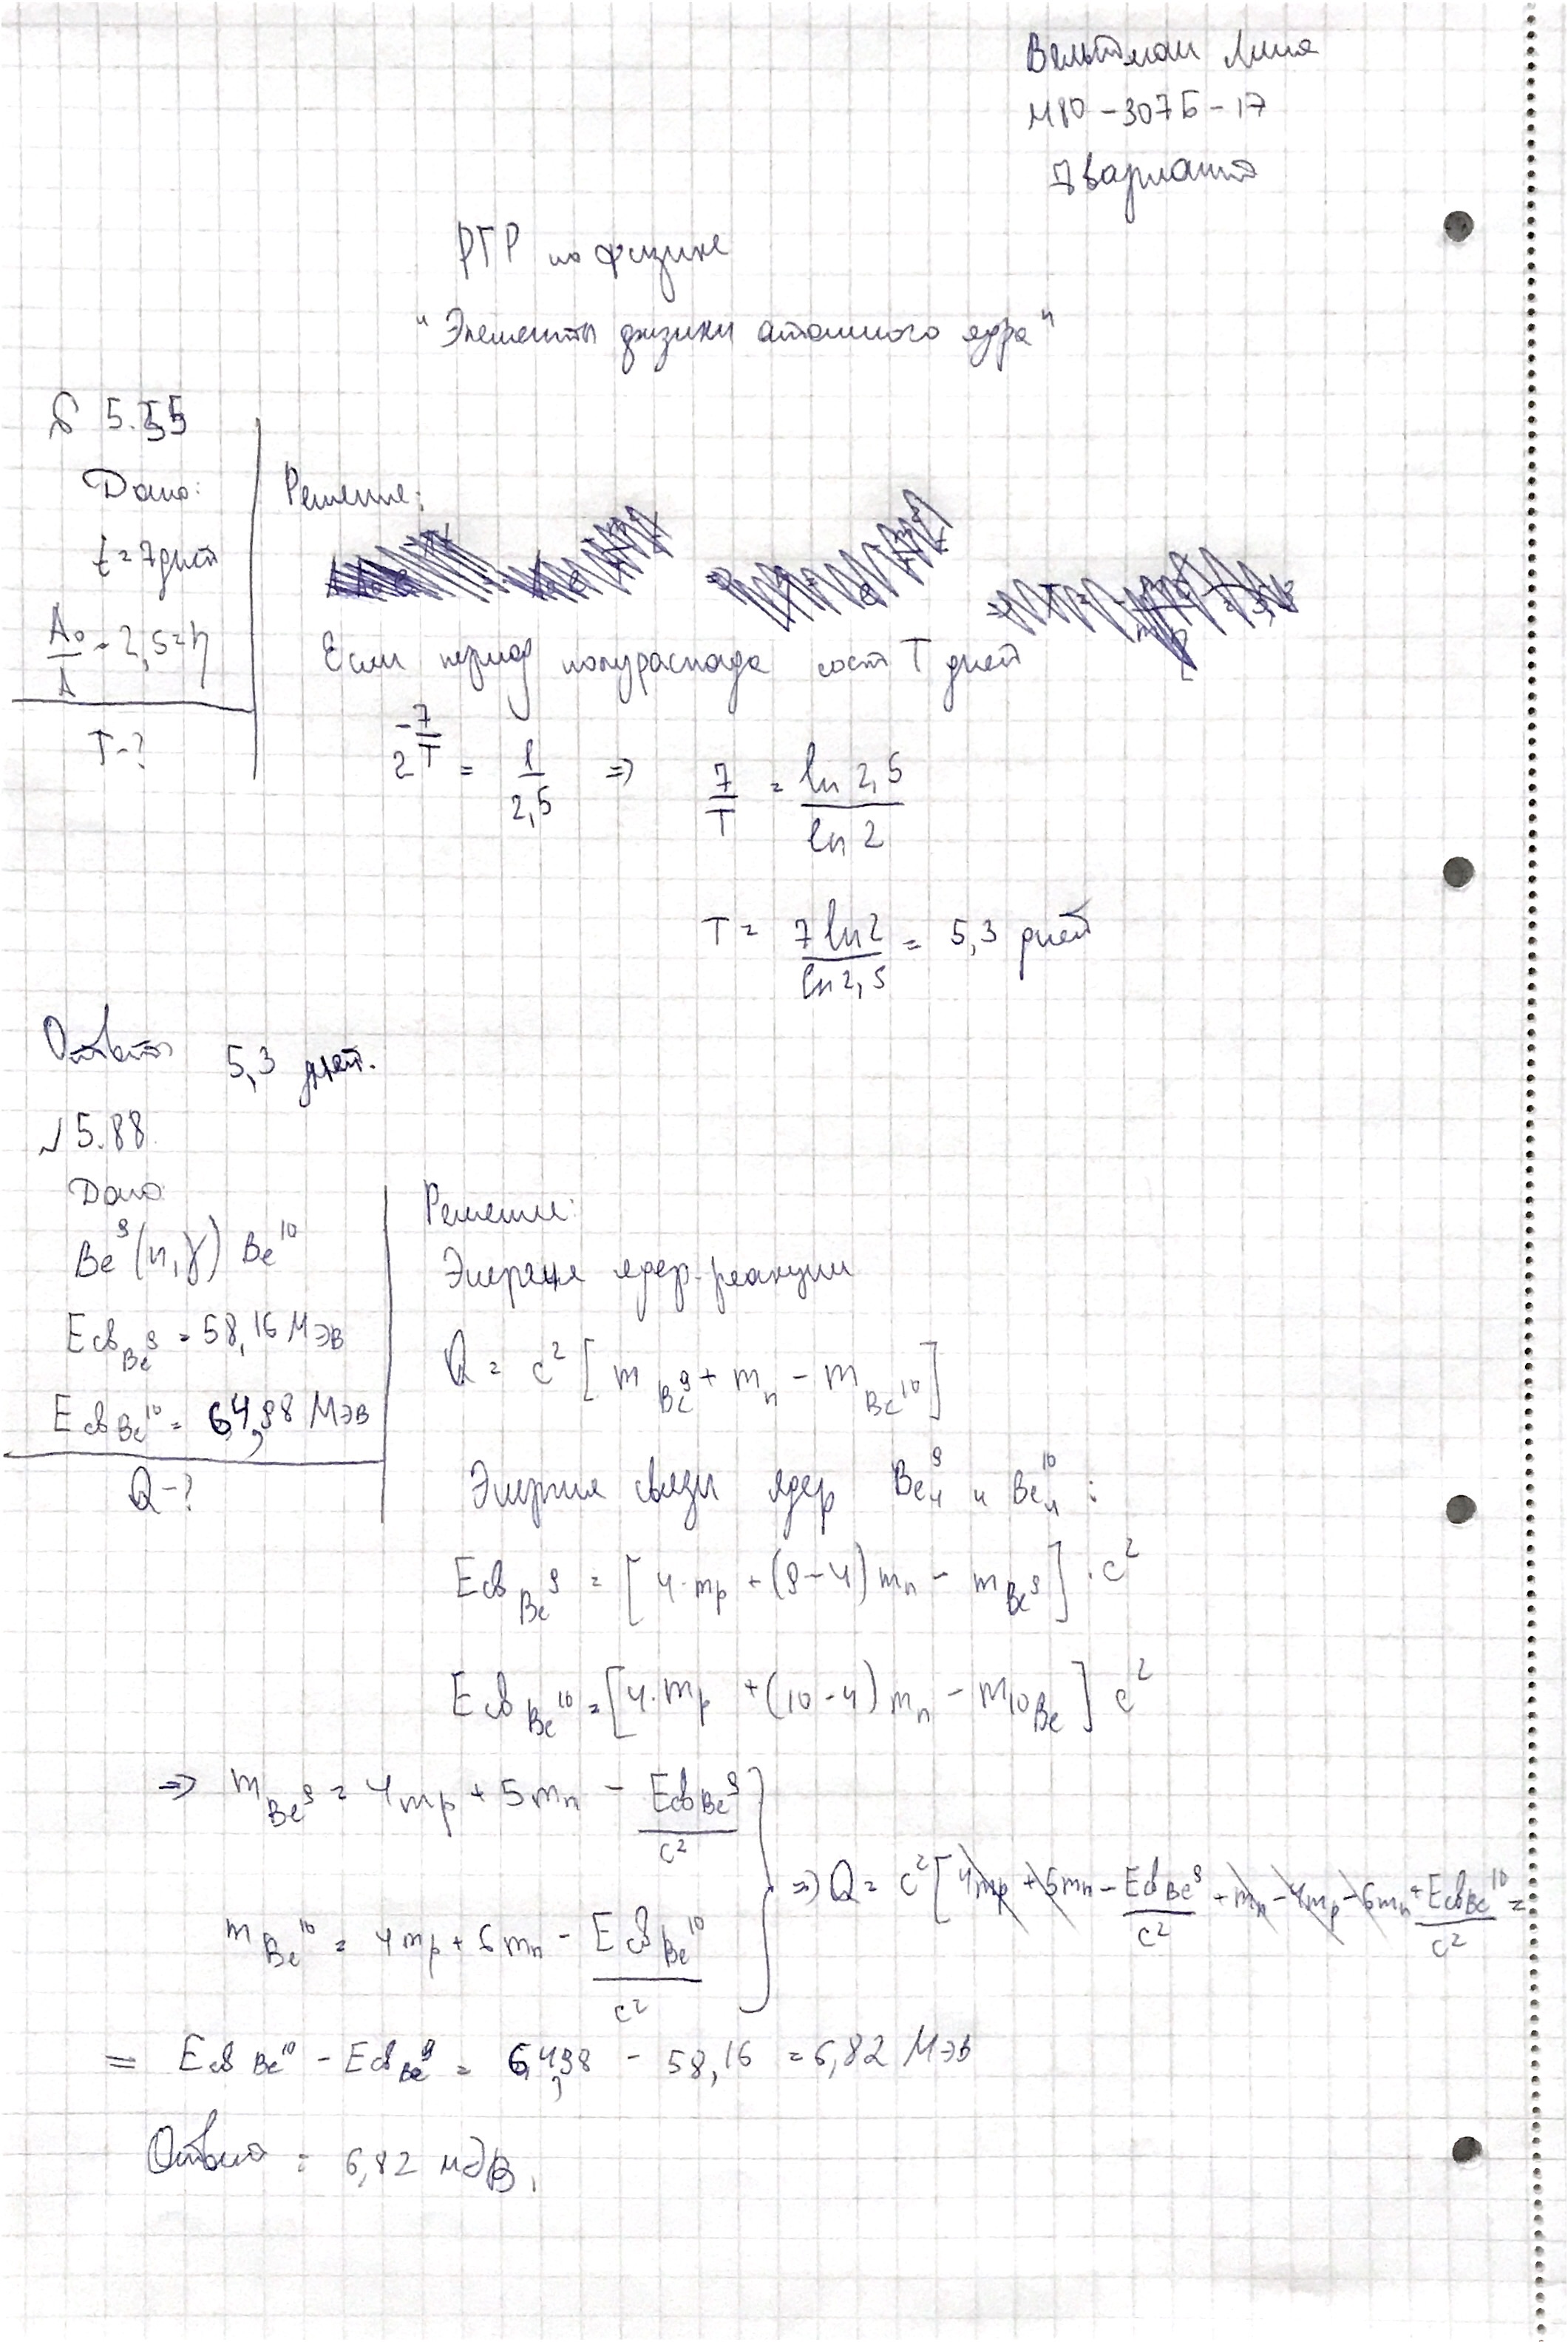 Вельтман Лина
М80-307Б-17
7 вариант
РГР по физике
"Элементы физики атомного ядра"
5.55
Дано:
t = 7 дней
A₀/A = 2,5 = η
T-?
Решение:
Если период полураспада сост T дней
2^(-7/T) = 1/2,5 ⇒ 7/T = ln 2,5 / ln 2
T = 7 ln 2 / ln 2,5 = 5,3 дней
Ответ 5,3 дней.
№ 5.88
Дано
Be⁹ (n, γ) Be¹⁰
Eсв Be⁹ = 58,16 МэВ
Eсв Be¹⁰ = 64,98 МэВ
Q-?
Решение:
Энергия ядер. реакции
Q = c² [m Be⁹ + mn - m Be¹⁰]
Энергия связи ядер Be₄⁹ и Be₄¹⁰ :
Eсв Be⁹ = [4·mp + (9-4) mn - m Be⁹] · c²
Eсв Be¹⁰ = [4·mp + (10-4) mn - m10Be] c²
⇒ m Be⁹ = 4mp + 5mn - Eсв Be⁹/c²
m Be¹⁰ = 4mp + 6mn - Eсв Be¹⁰/c²
⇒ Q = c² [4mp + 5mn - Eсв Be⁹/c² + mn - 4mp - 6mn + Eсв Be¹⁰/c² =
= Eсв Be¹⁰ - Eсв Be⁹ = 64,98 - 58,16 = 6,82 МэВ
Ответ : 6,82 МэВ.